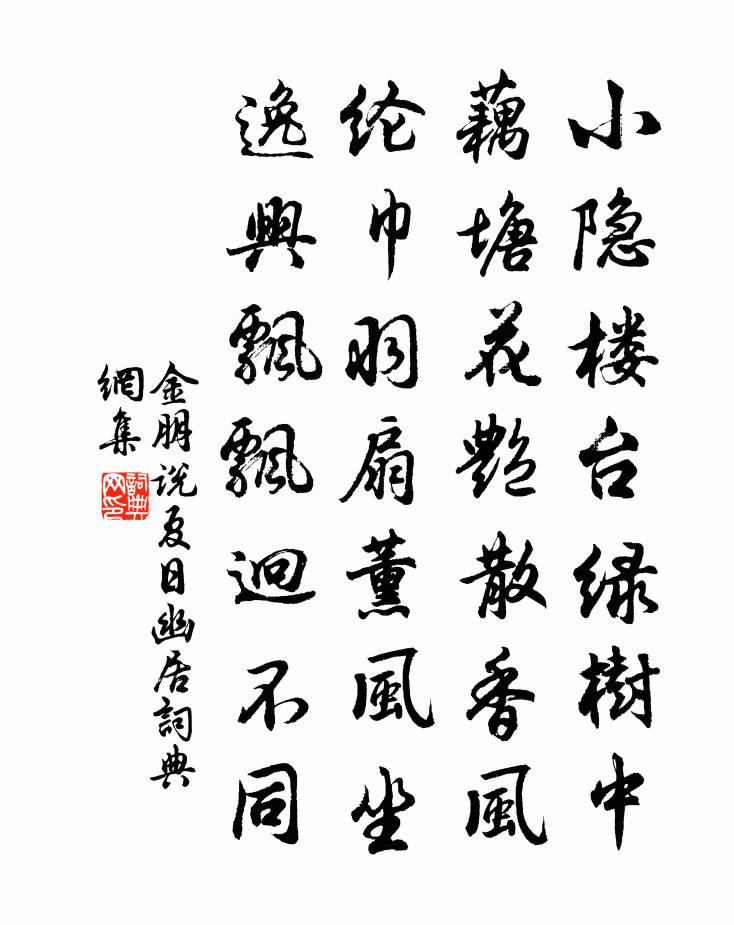 小隐楼台绿樹中
藕塘花艶散香風
纶巾羽扇薰風坐
逸興飄飄迥不同
金朋说夏日幽居詞典
網集
詞典
网印